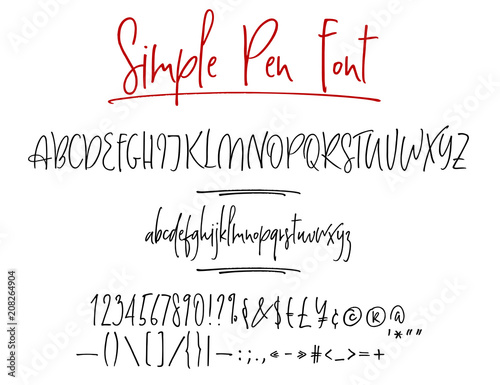 Simple Pen Font
ABCDEFGHIJKLMNOPQRSTUVWXYZ
abcdefghijklmnopqrstuvwxyz
1234567890!?%&$£¥¢©®@
'*"”
—()\[]/{}|—:;.,«-»#<_>=+
208264904